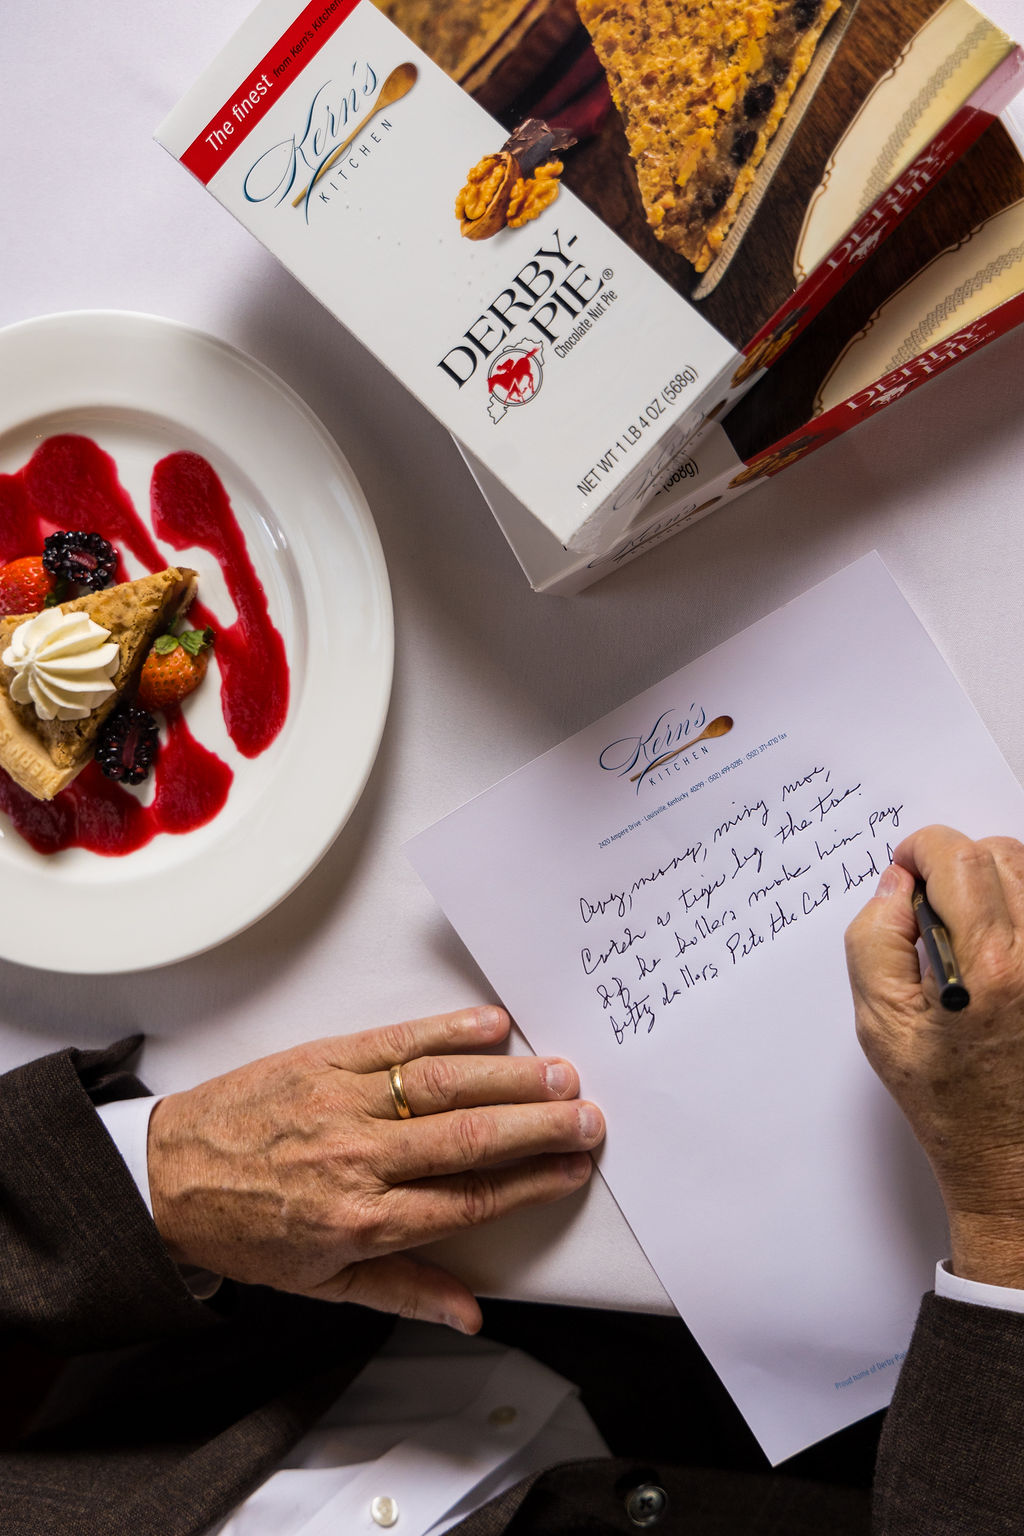 The finest from Kern's Kitchen
Kern's
KITCHEN
DERBY-
PIE®
Chocolate Nut Pie
NET WT 1 LB 4 OZ (568g)
DERBY-
PIE
DERBY-
PIE®
(568g)
Kern's
Kern's
Kern's
KITCHEN
2420 Ampere Drive · Louisville, Kentucky 40299 · (502) 499-0285 · (502) 371-4710 fax
meeney, miney moe,
Catch a tiger by the toe.
If he hollers make him pay
fifty dollars Pete the Cat had
Proud home of Derby-Pie